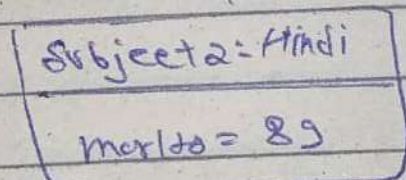 Subject2 = Hindi
Marks = 89